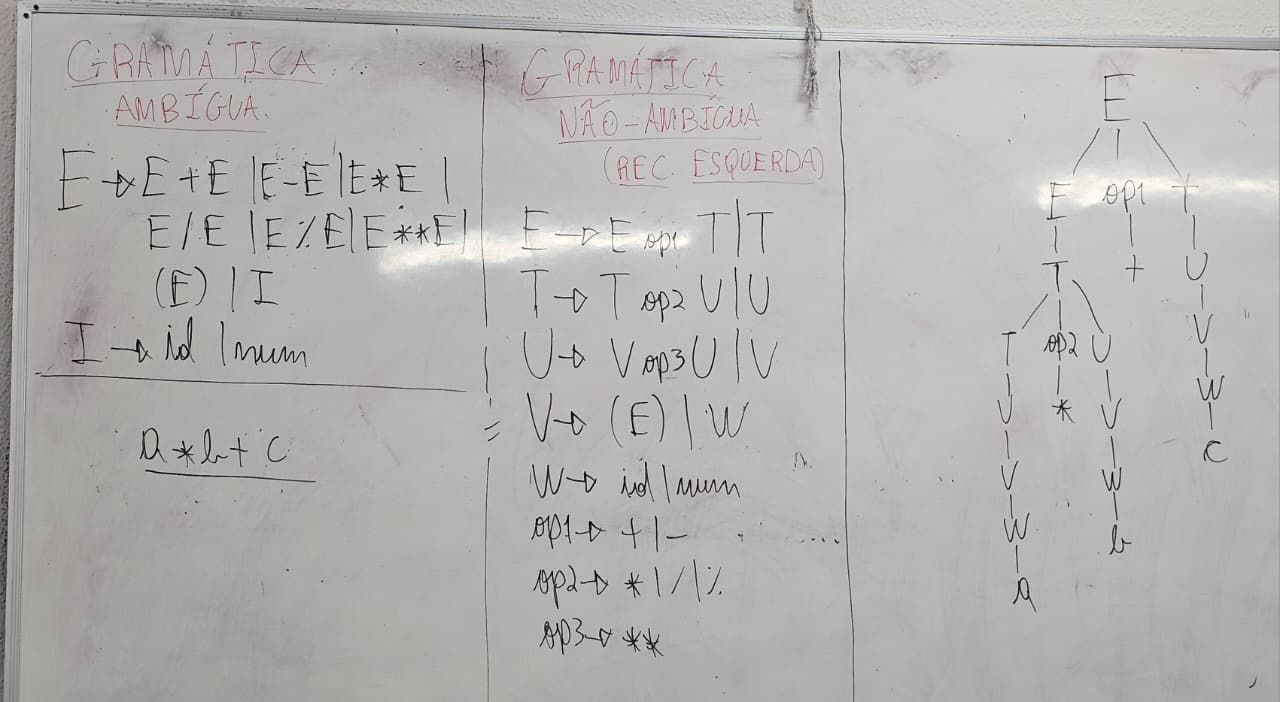 GRAMÁTICA
AMBÍGUA.
E → E + E | E - E | E * E |
E / E | E % E | E ** E |
(E) | I
I → id | num
a * b + c
GRAMÁTICA
NÃO-AMBÍGUA
(REC. ESQUERDA)
E → E op1 T | T
T → T op2 U | U
U → V op3 U | V
V → (E) | W
W → id | num
op1 → + | -
op2 → * | / | %
op3 → **
E
E op1 T
T + U
T op2 U V
U * V W
V W c
W b
a